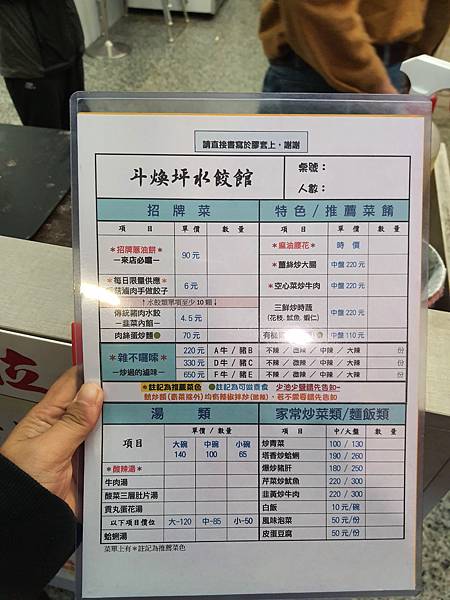 請直接書寫於膠套上，謝謝
斗煥坪水餃館
桌號：
人數：
招牌菜
項目 單價 數量
＊招牌蔥油餅＊
－來店必嚐－
90元
＊每日限量供應＊
菇滷肉手做餃子
6元
↑水餃類單項至少10顆↓
傳統豬肉水餃
－韭菜內餡－
4.5元
肉絲蛋炒麵
70元
特色/推薦菜餚
項目 單價 數量
＊麻油腰花＊ 時價
＊薑絲炒大腸 中盤220元
＊空心菜炒牛肉 中盤220元
三鮮炒時蔬
(花枝、魷魚、蝦仁)
中盤220元
中盤110元
＊雜不囉嗦＊
－炒過的滷味－
220元 A牛/豬B 不辣/微辣/中辣/大辣 份
330元 D牛/豬C 不辣/微辣/中辣/大辣 份
650元 F牛/豬E 不辣/微辣/中辣/大辣 份
＊註記為推薦菜色 註記為可做素食 少油少鹽請先告知~
湯類
項目 單價/數量
大碗 中碗 小碗
140 100 65
＊酸辣湯＊
牛肉湯
酸菜三層肚片湯
貢丸蛋花湯
以下項目價位 大-120 中-85 小-50
蛤蜊湯
菜單上有＊註記為推薦菜色
家常炒菜類/麵飯類
項目 中/大盤 數量
炒青菜 100/130
塔香炒蛤蜊 190/260
爆炒豬肝 180/250
芹菜炒魷魚 220/300
韭黃炒牛肉 220/300
白飯 10元/碗
風味泡菜 50元/份
皮蛋豆腐 50元/份